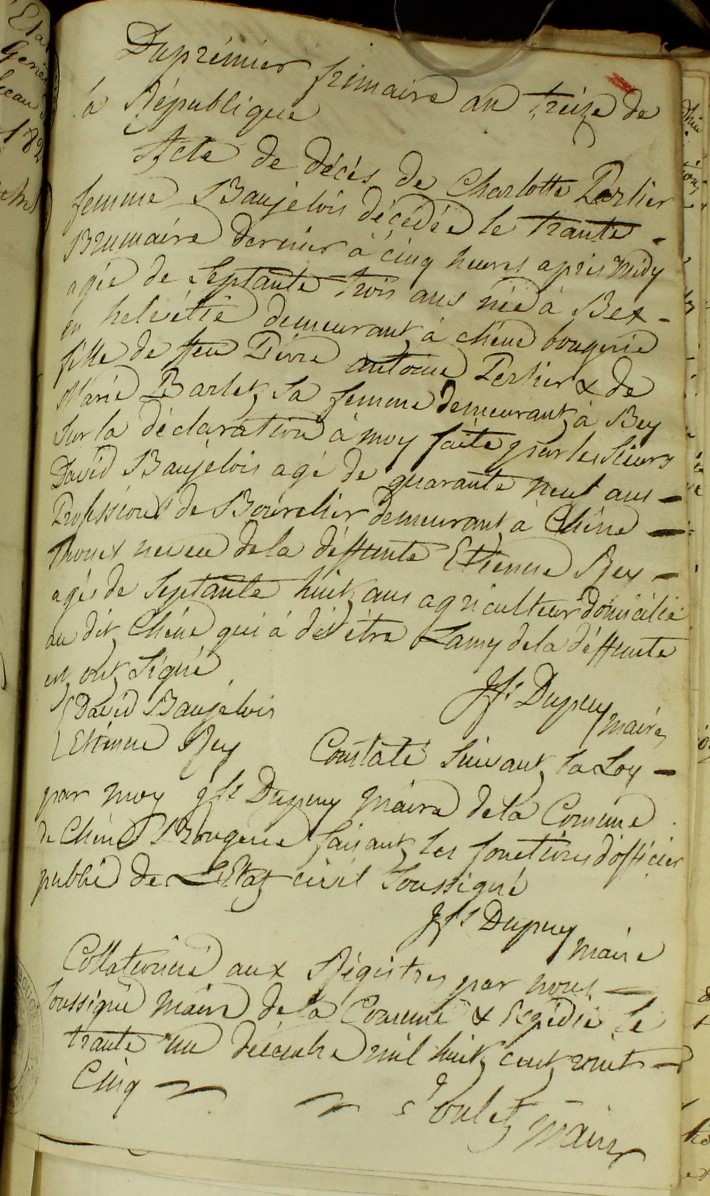 Du prémier frimaire an treize de
la République
Acte de décès de Charlotte Perlier
femme Baujelois décédée le trante
Brumaire dernier à cinq heures après midy
agée de Septante trois ans née à Bex
en helvétie demeurant à chêne bougerie
fille de feu Piérre antoine Perlier & de
Marie Barlet sa femme demeurant à Bey
Sur la déclaration à moy faite par les Sieurs
David Baujelois agé de quarante neuf ans
Profession de Bourelier demeurant à Chêne
Thonex neveu de la déffunte Etienne Rey
agés de Septante huit ans agriculteur domicilié
au dit Chêne qui à dit être Lamy de la déffunte
en ont Signé
David Baujelois
Jfs Dupuy maire
Etienne Rey Constaté Suivant la Loy
par moy Jfs Dupuy Maire de la Comune
de Chêne Bougerie faisant les fonctions d'officier
public de LEtat civil Soussigné
Jfs Dupuy maire
Collationné aux Régistres par nous
Soussigné Maire de la Comune & Expédié le
trante un décembre mil huit cent vint
Cinq
Maire